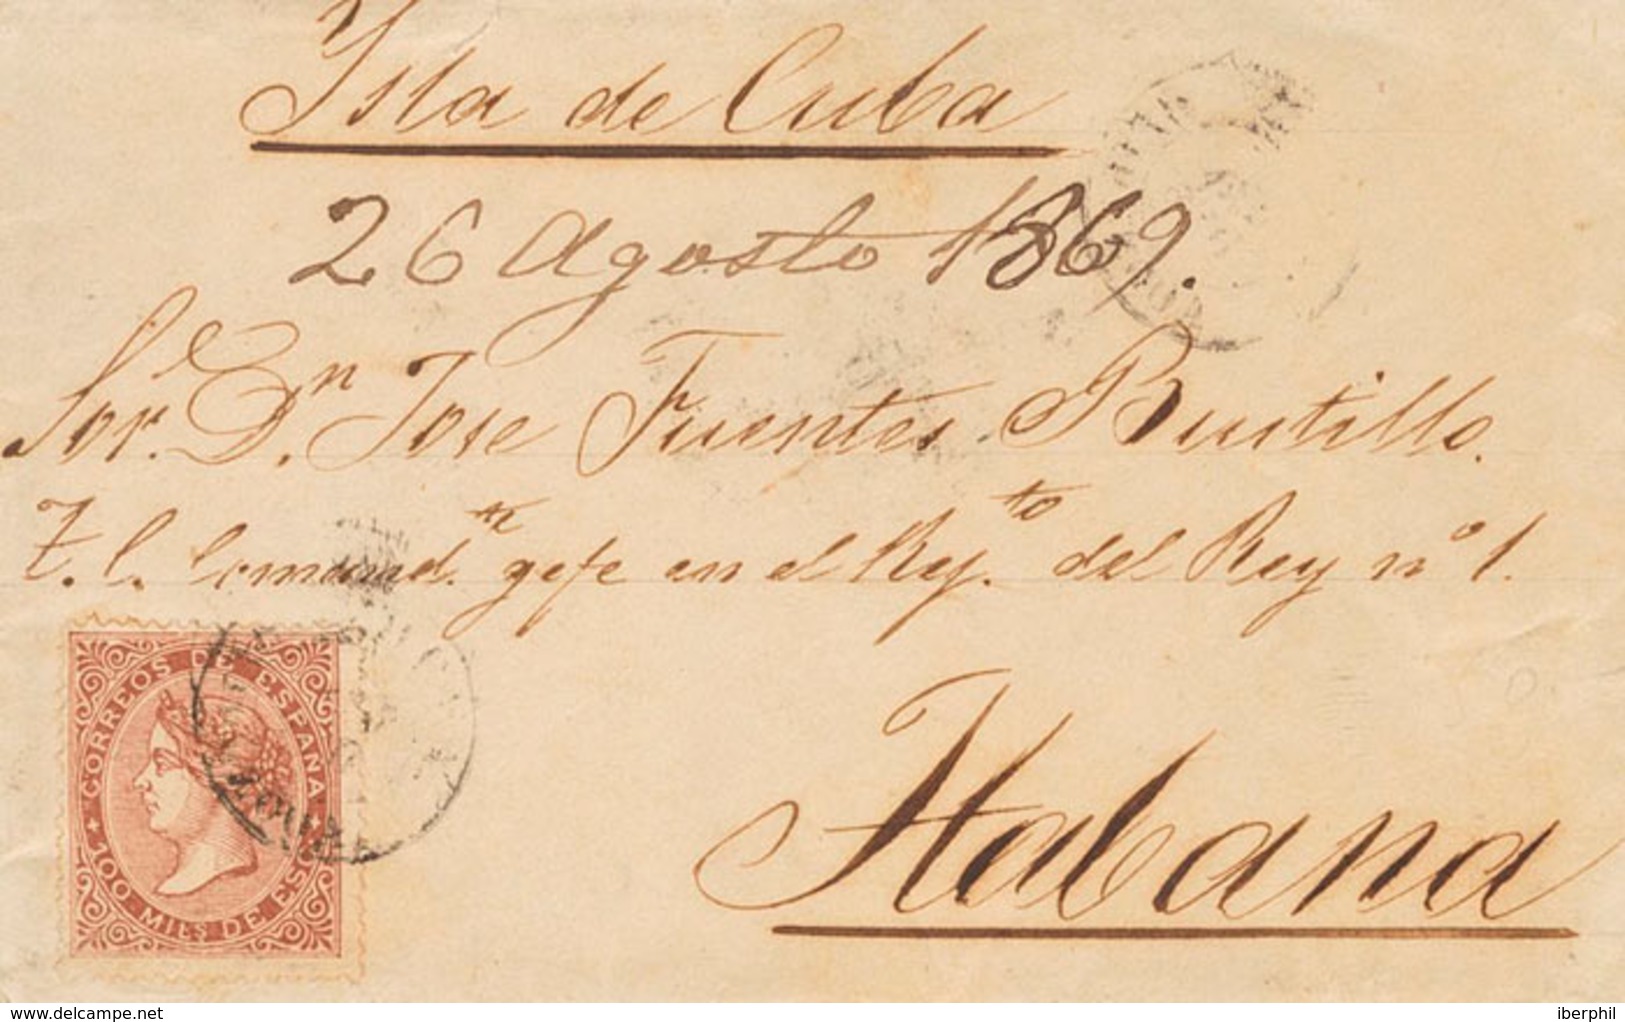 Ysla de Cuba
26 Agosto 1869.
Sor. Dn. Jose Fuentes Bustillo.
T. C. Comandte gefe en el Rejto del Rey nº 1.
Habana
CORREOS DE ESPAÑA
100 MILS DE ESCUDO
delcampe.net
iberphil